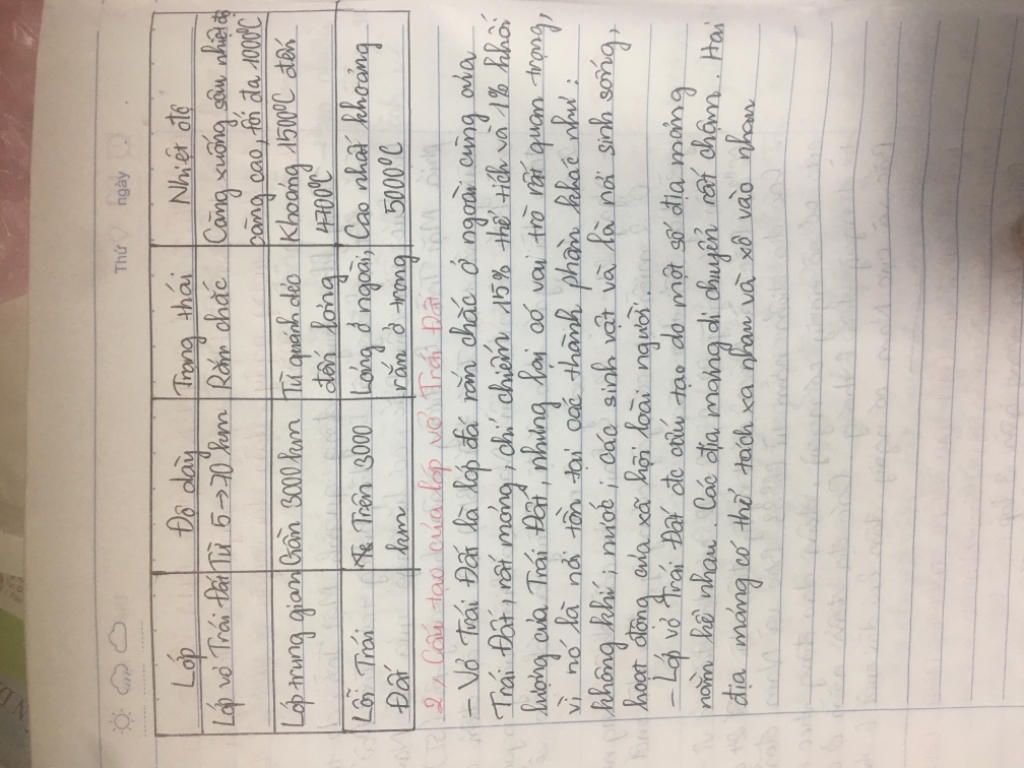 Thứ ngày
Lớp Độ dày Trạng thái Nhiệt độ
Lớp vỏ Trái Đất Từ 5→70 km Rắn chắc Càng xuống sâu nhiệt độ
càng cao, tối đa 1000°C
Lớp trung gian Gần 3000 km Từ quánh dẻo Khoảng 1500°C đến
đến lỏng 4700°C
Lõi Trái Trên 3000 Lỏng ở ngoài, Cao nhất khoảng
Đất km rắn ở trong 5000°C
2. Cấu tạo của lớp vỏ Trái Đất
- Vỏ Trái Đất là lớp đá rắn chắc ở ngoài cùng của
Trái Đất, rất mỏng, chỉ chiếm 15% thể tích và 1% khối
lượng của Trái Đất, nhưng lại có vai trò rất quan trọng,
vì nó là nơi tồn tại các thành phần khác như:
không khí, nước, các sinh vật và là nơi sinh sống,
hoạt động của xã hội loài người.
- Lớp vỏ Trái Đất đc cấu tạo do một số địa mảng
nằm kề nhau. Các địa mảng di chuyển rất chậm. Hai
địa mảng có thể tách xa nhau và xô vào nhau